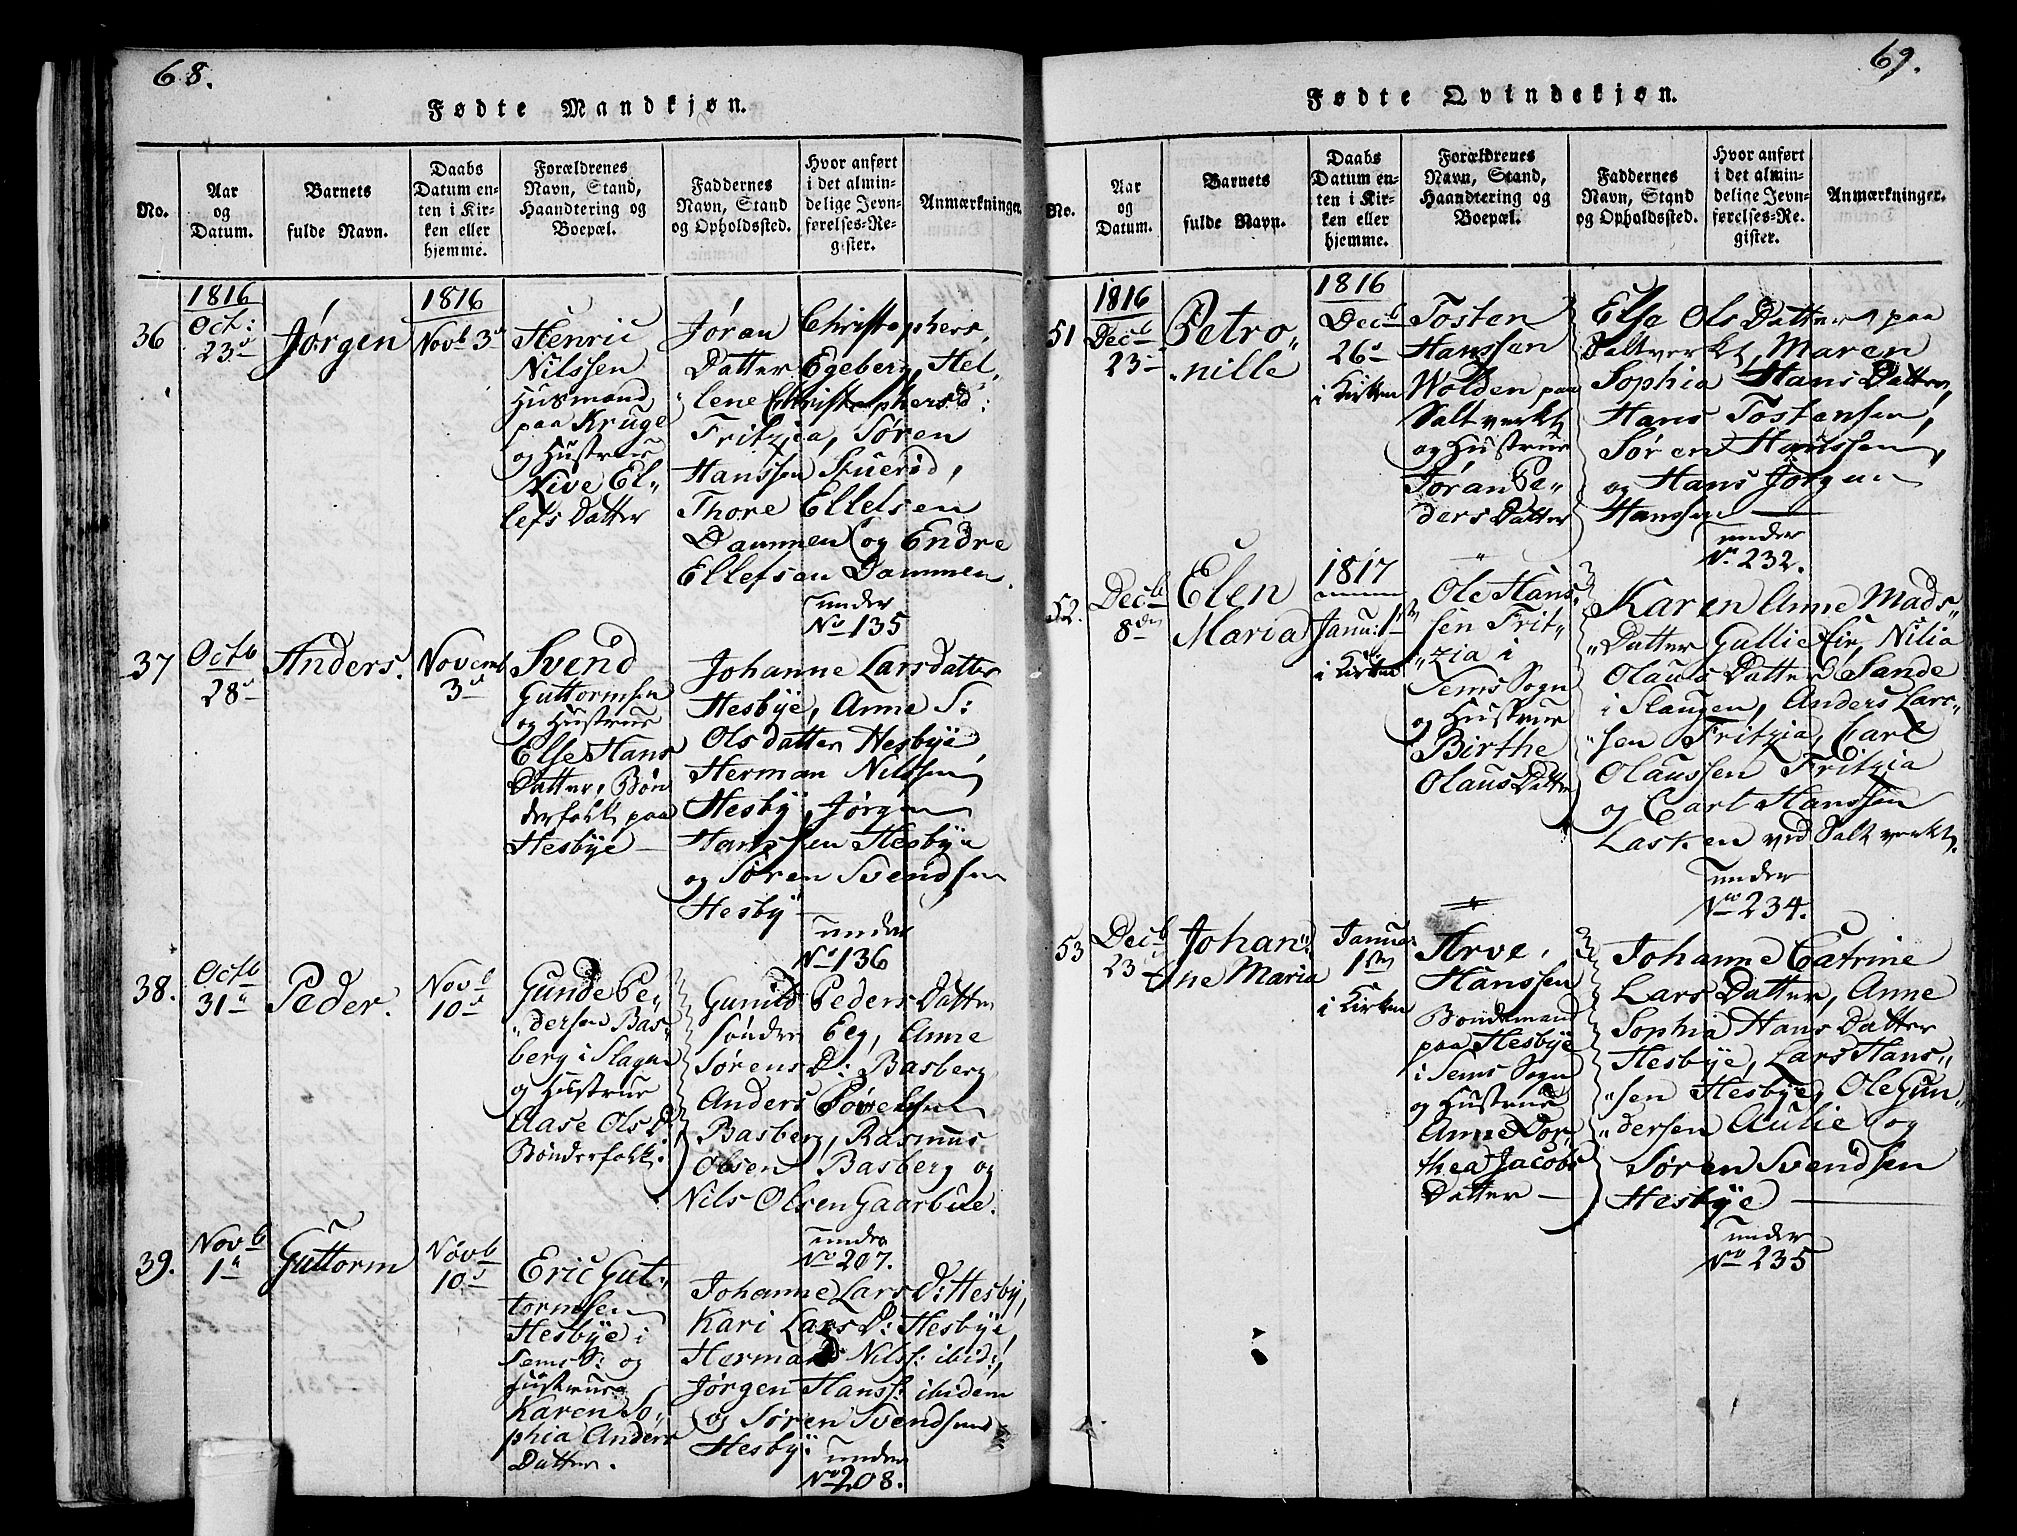 68.
Fødte Mandkjøn.
No.
Aar
og
Datum.
Barnets
fulde Navn.
Daabs
Datum en-
ten i Kir-
ken eller
hjemme.
Forældrenes
Navn, Stand,
Haandtering og
Boepæl.
Faddernes
Navn, Stand
og Opholdssted.
Hvor anført
i det almin-
delige Jevn-
førelses-Re-
gister.
Anmærkninger.
36
1816
Oct:
23d
Jørgen
1816
Novb 3d
Henric
Nilssen
Husmand
paa Kruge
og Hustrue
Live El-
lefs Datter
Jøran Christophers
Datter Egeberg, Hel-
lene Christophersd:
Fritzia, Søren
Hanssen Stuerød,
Thore Ellefsen
Dammen og Endre
Ellefsen Dammen.
under
No 135
37
Octb
28d
Anders.
Novemb
3d
Svend
Guttormsen
og Hustrue
Else Hans
Datter, Bøn
derfolk paa
Hesbye
Johanne Larsdatter
Hesbye, Anne S:
Olsdatter Hesbye,
Herman Nilssen
Hesby, Jørgen
Hanssen Hesbye
og Søren Svendsen
Hesby
under
No 136
38.
Octb
31te
Peder.
Novb
10d
Gunde Pe-
dersen Bas-
berg i Slagen
og Hustrue
Aase Ols D:
Bønderfolk:
Gunild Peders Datter
Søndre Eeg, Anne
Sørens D: Basberg
Anders Povelsen
Basberg, Rasmus
Olsen Basberg og
Nils Olsen Gaarbue.
under
No 207.
39.
Novb
1te
Guttorm
Novb
10d
Eric Gut-
tormsen
Hesbye i
Sems S: og
Hustrue
Karen So-
phia Anders
Datter.
Johanne Lars D: Hesby,
Kari Lars D: Hesbye,
Herman Nilss: ibid:,
Jørgen Hanss: ibidem
og Søren Svendsen
Hesby:
under
No 208.
69.
Fødte Qvindekjøn.
No.
Aar
og
Datum.
Barnets
fulde Navn.
Daabs
Datum en-
ten i Kir-
ken eller
hjemme.
Forældrenes
Navn, Stand,
Haandtering og
Boepæl.
Faddernes
Navn, Stand
og Opholdssted.
Hvor anført
i det almin-
delige Jevn-
førelses-Re-
gister.
Anmærkninger.
51
1816
Decb
23
Petro-
nille
1816
Decb
26d
i Kirken
Tosten
Hanssen
Wolden paa
Saltverket
og Hustrue
Jøran Pe-
ders Datter
Else Ols Datter, paa
Saltverket, Maren
Sophia Hans Datter,
Hans Tostensen,
Søren Hanssen,
og Hans Jørgen
Hanssen
under
No 232.
52.
Decb
8de
Elen
Maria
1817
Janu: 1ste
i Kirken
Ole Hans-
sen Frit-
zia i
Sems Sogn
og Hustrue
Birthe
Olaus Datter
Karen Anne Mads
Datter Gullie Eie, Nilia
Olaus Datter Sande
i Slaugen, Anders Lars-
sen Fritzia, Carl
Olaussen Fritzia
og Carl Hanssen
Lasken ved Saltverket.
under
No 234.
53
Decb
23
Johan-
ne Maria
Janua:
1ste
i Kirken
Arve
Hanssen
Bondemand
paa Hesbye
i Sems Sogn
og Hustrue
Anne Dor-
thea Jacobs
Datter
Johanne Catrine
Lars Datter, Anne
Sophia Hans Datter
Hesbye, Lars Hans-
sen Hesbye, Ole Gun-
dersen Aulie og
Søren Svendsen
Hesbye
under
No 235